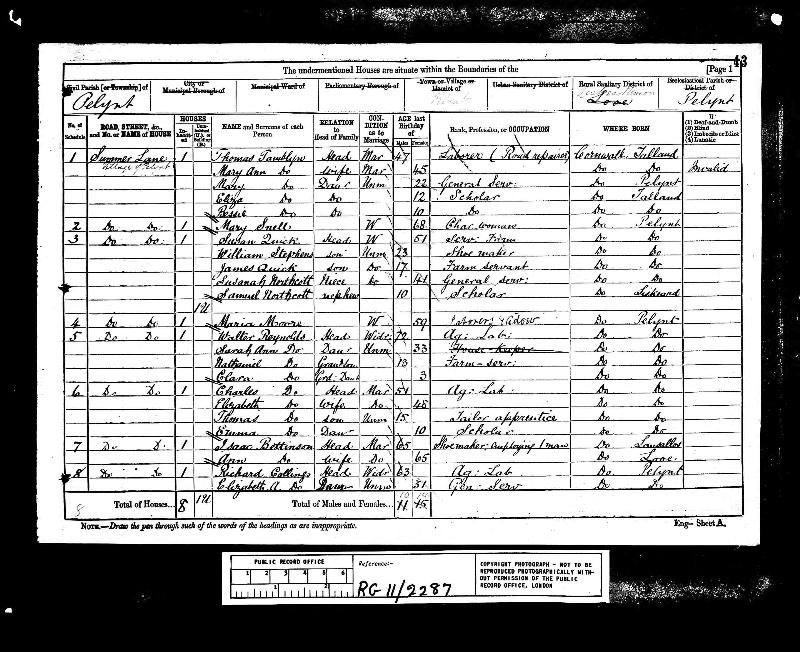 43
The undermentioned Houses are situate within the Boundaries of the [Page 1
Civil Parish [or Township] of City or Municipal Borough of Municipal Ward of Parliamentary Borough of Town or Village or Hamlet of Urban Sanitary District of Rural Sanitary District of Ecclesiastical Parish or District of
Pelynt Looe Pelynt
No. of Schedule ROAD, STREET, &c., and No. or NAME of HOUSE HOUSES NAME and Surname of each Person RELATION to Head of Family CONDITION as to Marriage AGE last Birthday of Rank, Profession, or OCCUPATION WHERE BORN If (1) Deaf-and-Dumb (2) Blind (3) Imbecile or Idiot (4) Lunatic
1 Summer Lane 1 Thomas Tamblyn Head Mar 47 Laborer (Road repairer) Cornwall Talland
Mary Ann Do Wife Mar 45 Do Do Invalid
Mary Do Daur Unm 22 General Serv: Do Pelynt
Eliza Do Do 12 Scholar Do Talland
Bessie Do Do 10 Do Do Do
2 Do Do 1 Mary Snell W 68 Char woman Do Pelynt
3 Do Do 1 Susan Quick Head W 51 Serv: Farm Do Do
William Stephens son Unm 23 Shoe maker Do Do
James Quick son Do 17 Farm servant Do Do
Susanah Northcott Niece Do General serv: Do Do
Samuel Northcott nephew 10 Scholar Do Liskeard
4 Do Do 1 Maria Moore W 59 Do Pelynt
5 Do Do 1 Walter Reynolds Head Widr 72 Ag: Lab: Do Do
Sarah Ann Do Daur Unm 33 House Keeper Do Do
Nathaniel Do Grandson 13 Farm serv: Do Do
Clara Do Grd. Daur 3 Do Do
6 Do Do 1 Charles Do Head Mar 51 Ag: Lab Do Do
Elizabeth Do Wife Do 48 Do Do
Thomas Do son Unm 15 Tailor apprentice Do Do
Emma Do Daur 10 Scholar Do Do
7 Do Do 1 Isaac Bettinson Head Mar 65 Shoemaker, employing 1 man Do Lansallos
Ann Do Wife Do 65 Do Looe
8 Do Do 1 Richard Collings Head Widr 63 Ag: Lab Do Pelynt
Elizabeth A. Do Daur Unm 31 Gen: Serv Do Do
8 Total of Houses... 8 Total of Males and Females... 11 15
NOTE.—Draw the pen through such of the words of the headings as are inappropriate. Eng— Sheet A.
PUBLIC RECORD OFFICE
1 2 3 4 5 6
1 2
Reference:-
RG 11/2287
COPYRIGHT PHOTOGRAPH - NOT TO BE REPRODUCED PHOTOGRAPHICALLY WITHOUT PERMISSION OF THE PUBLIC RECORD OFFICE, LONDON